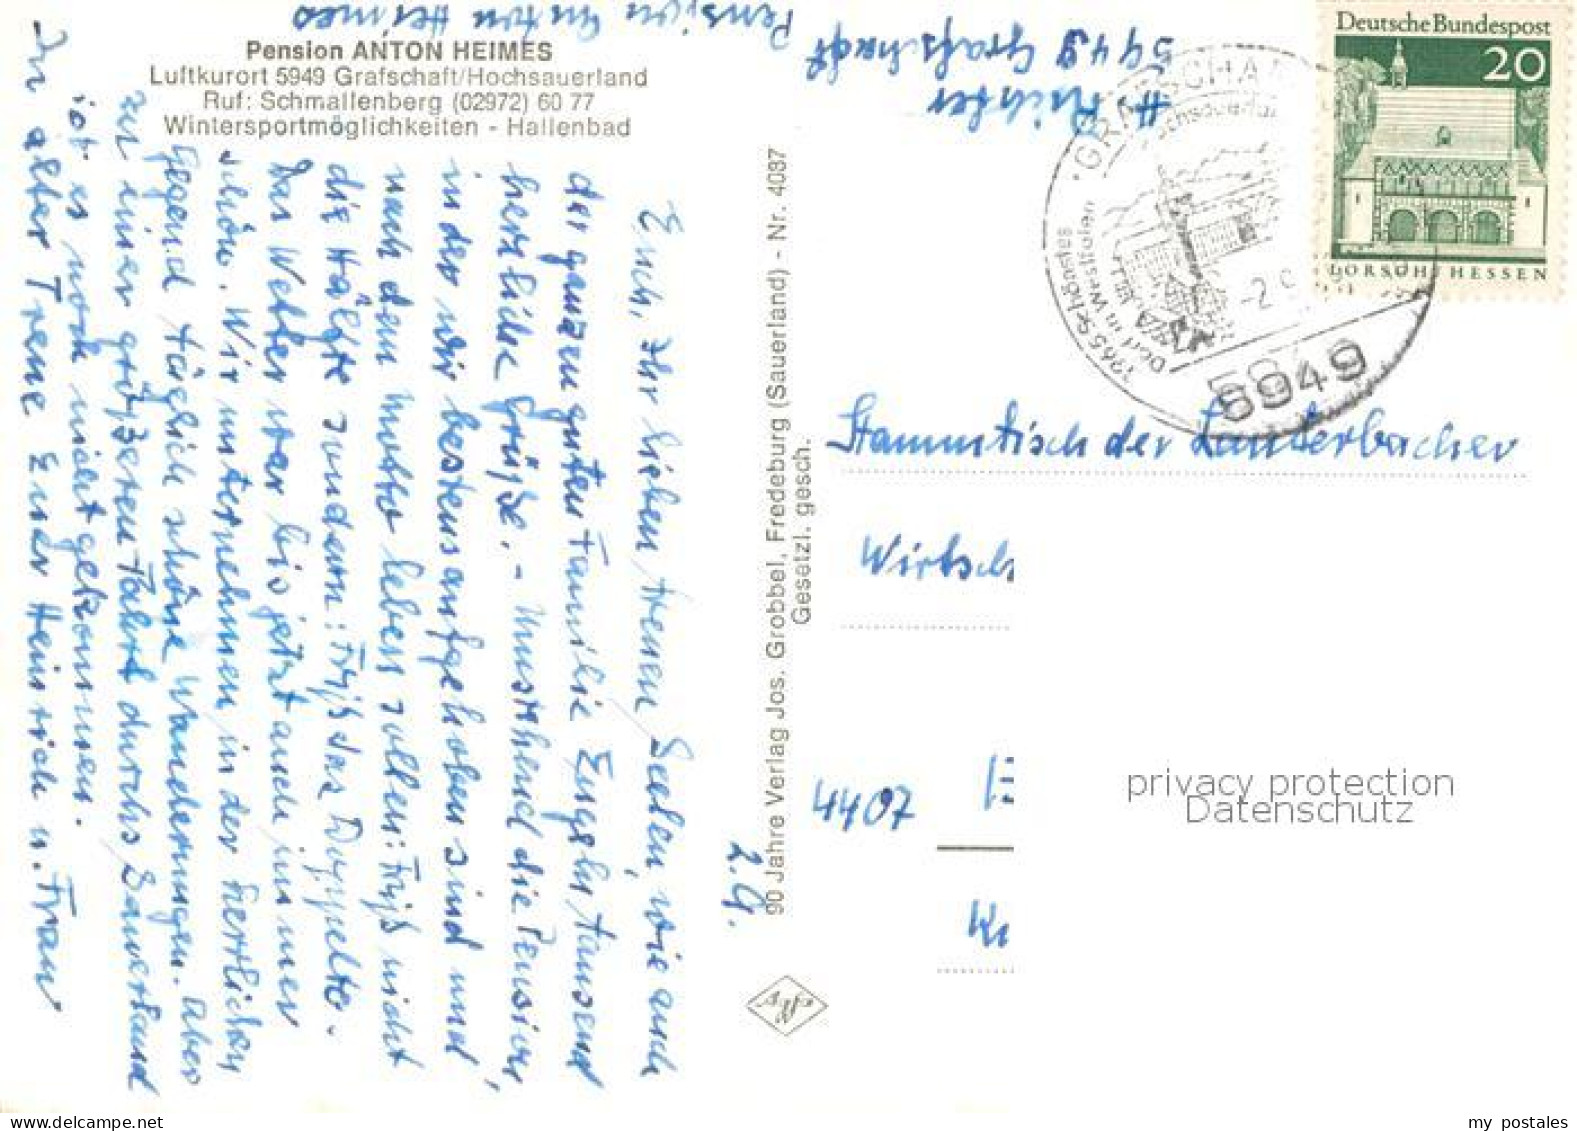 Pension Anton Heimes
5949 Grafschaft
H Richter
Pension ANTON HEIMES
Luftkurort 5949 Grafschaft/Hochsauerland
Ruf: Schmallenberg (02972) 60 77
Wintersportmöglichkeiten - Hallenbad
2.9.
Euch, Ihr lieben treuen Seelen, wie auch
der ganzen guten Familie Engeln tausend
herzliche Grüße. - Umstehend die Pension,
in der wir bestens aufgehoben sind und
nach dem Motto leben sollen: Friß nicht
die Hälfte sondern: Friß das Doppelte.
Das Wetter war bis jetzt auch immer
schön. Wir unternehmen in der herrlichen
Gegend täglich schöne Wanderungen. Aber
zu einer größeren Fahrt durchs Sauerland
ist es noch nicht gekommen.
In alter Treue Euer Heinrich u. Frau
90 Jahre Verlag Jos. Grobbel, Fredeburg (Sauerland) - Nr. 4087
Gesetzl. gesch.
Deutsche Bundespost
20
LORSCH/HESSEN
GRAFSCHA
1965 Schönstes
Dorf in Westfalen
-2.9
5949
Stammtisch der Lauterbacher
Wirtsch
4407
privacy protection
Datenschutz
my postales